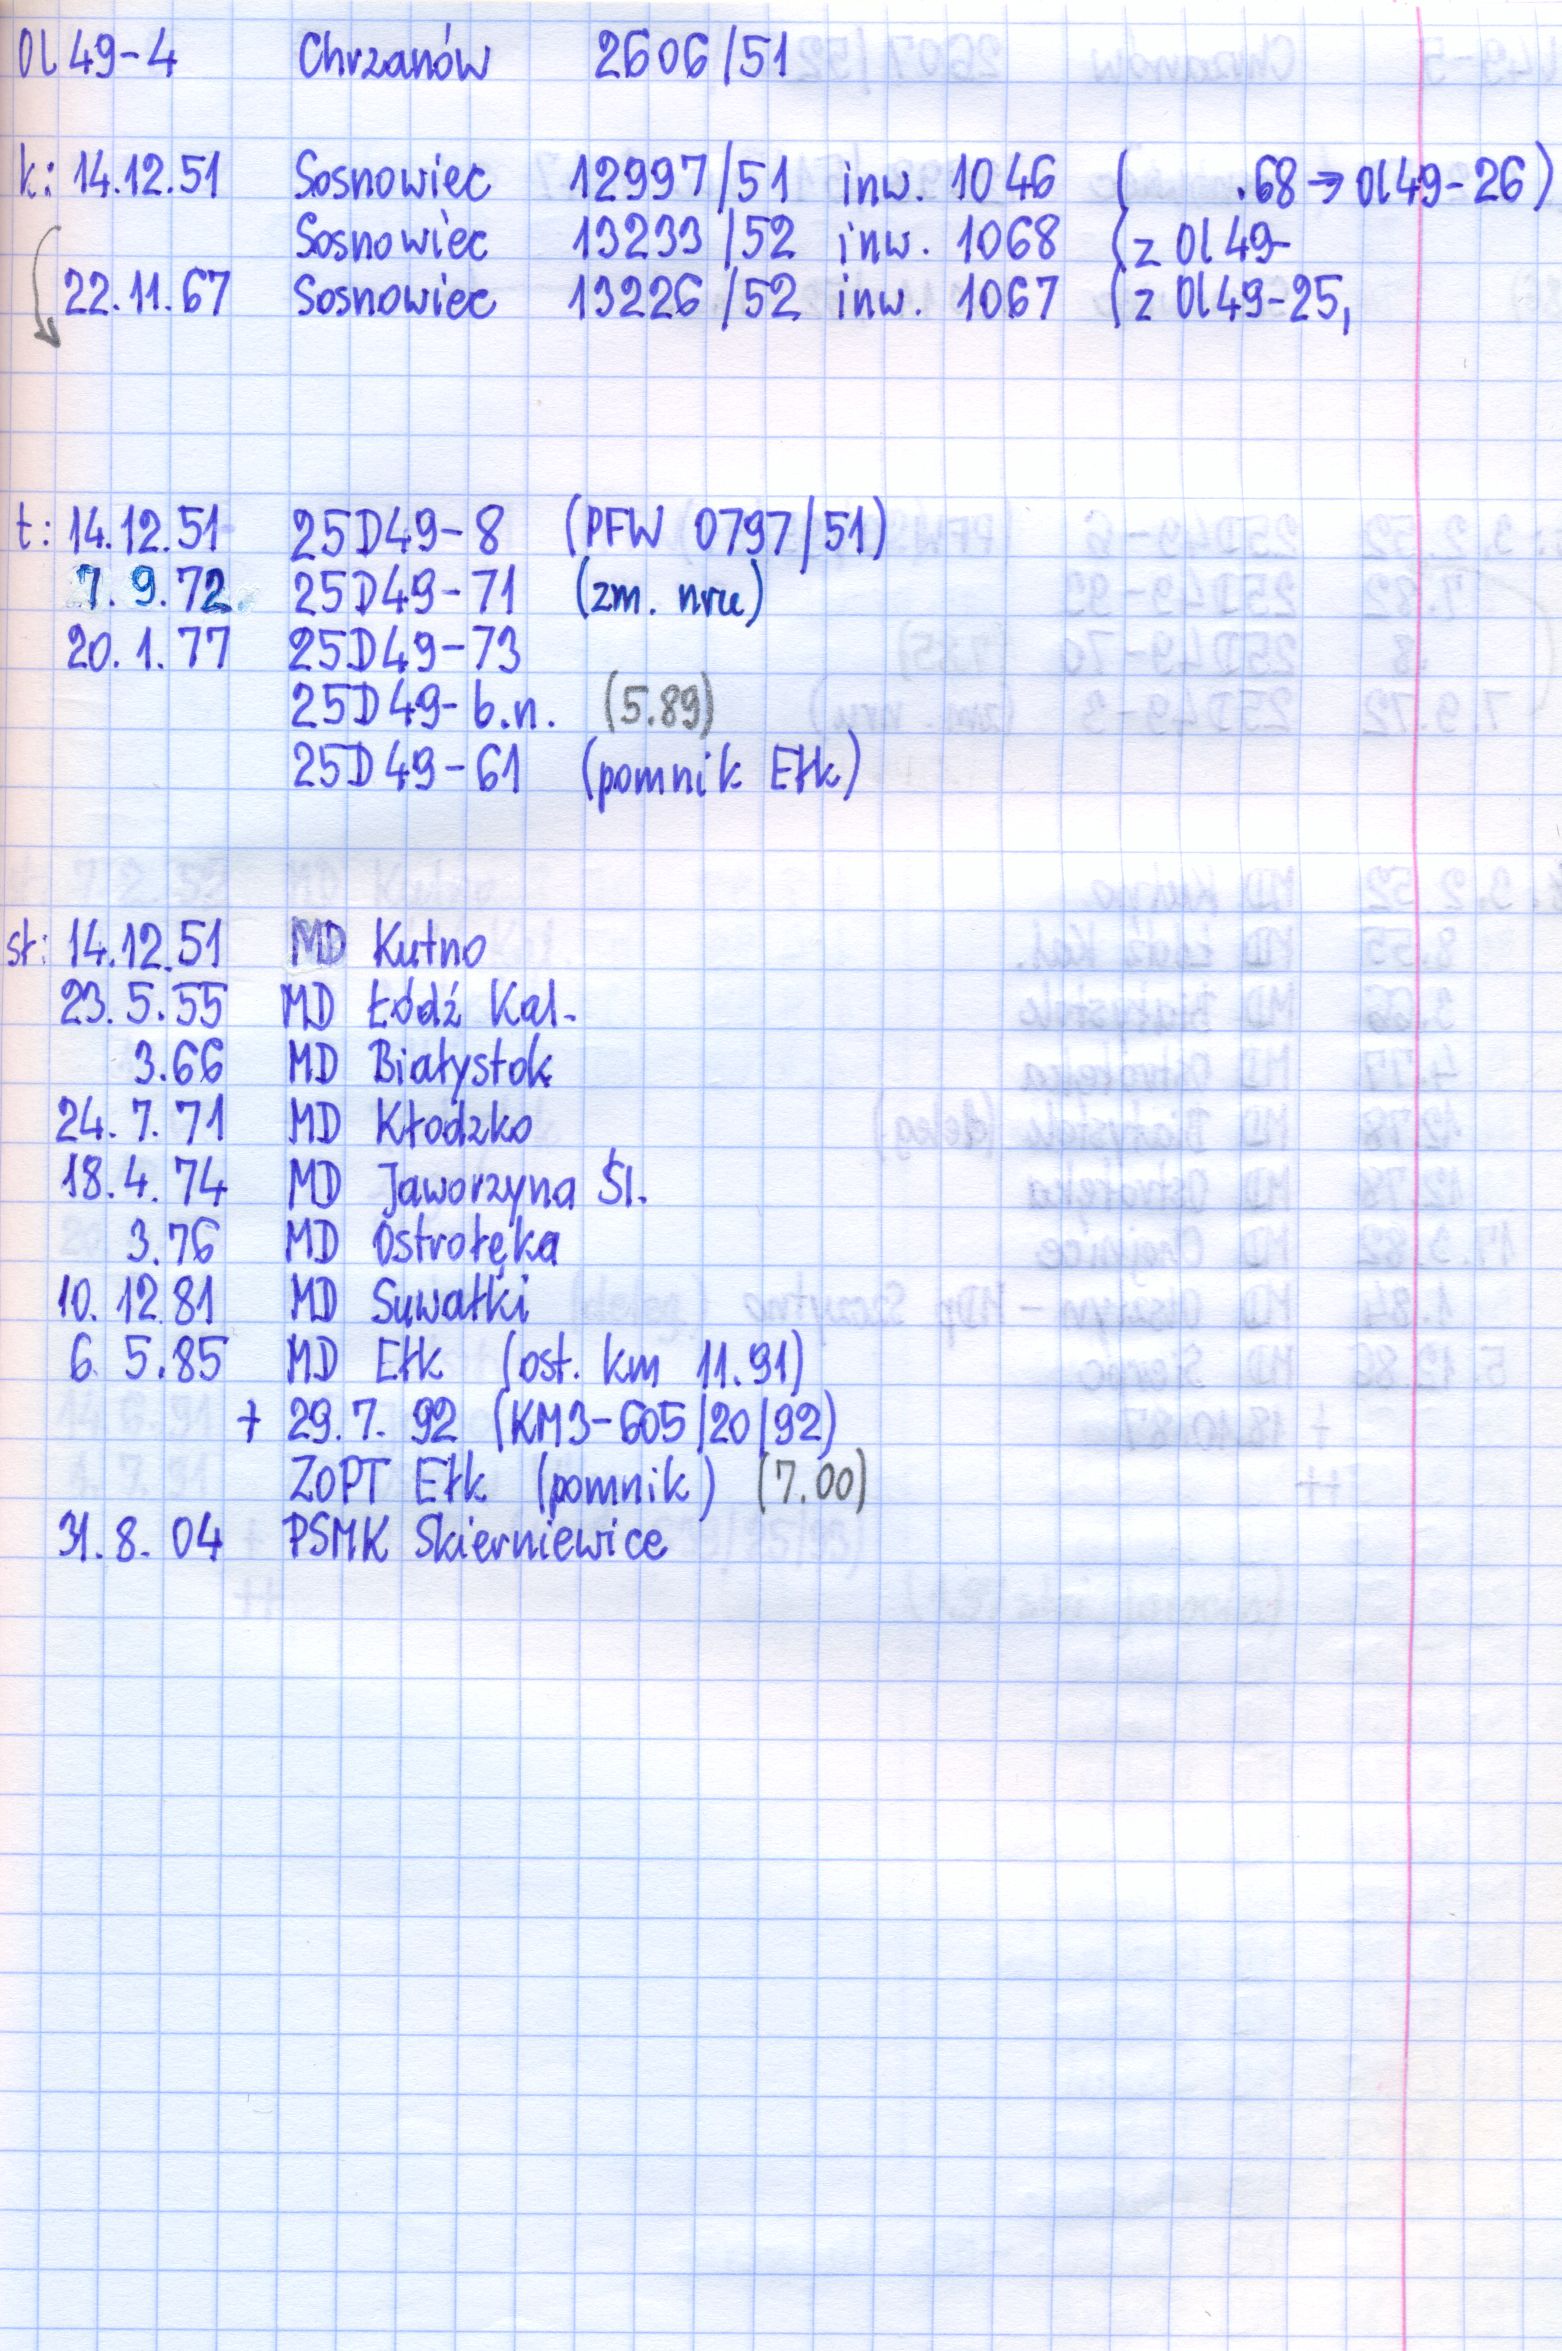 Ol 49-4 Chrzanów 2606/51
k: 14.12.51 Sosnowiec 12997/51 inw. 1046 ( .68 → Ol49-26)
Sosnowiec 13233/52 inw. 1068 (z Ol49-
22.11.67 Sosnowiec 13226/52 inw. 1067 (z Ol49-25,
t: 14.12.51 25D49-8 (PFW 0797/51)
7.9.72. 25D49-71 (zm. nru)
20.1.77 25D49-73
25D49-b.n. (5.89)
25D49-61 (pomnik Ełk)
st: 14.12.51 MD Kutno
23.5.55 MD Łódź Kal.
3.66 MD Białystok
24.7.71 MD Kłodzko
18.4.74 MD Jaworzyna Śl.
3.76 MD Ostrołęka
10.12.81 MD Suwałki
6.5.85 MD Ełk (ost. km 11.91)
+ 29.7.92 (KM3-605/20/92)
ZOPT Ełk (pomnik) (7.00)
31.8.04 PSMK Skierniewice